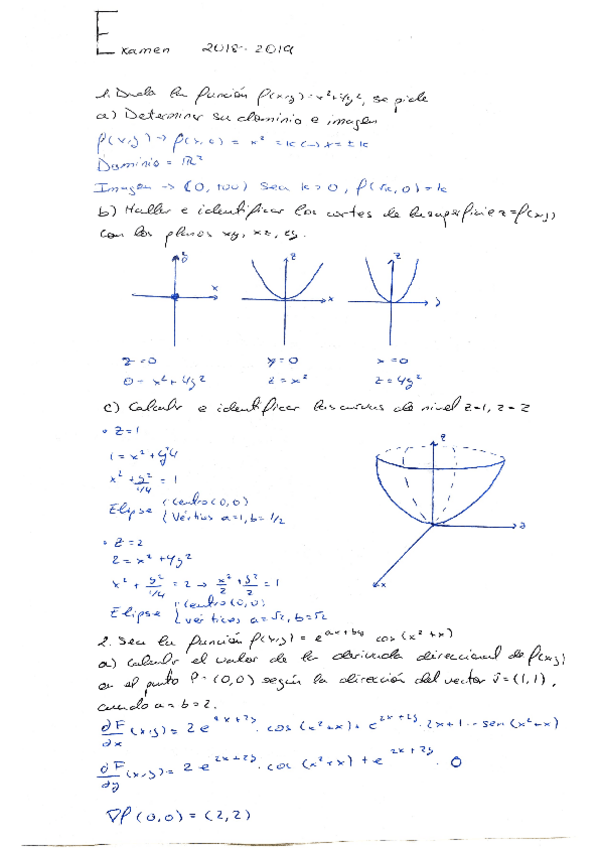 Examen 2018-2019
1. Dada la función f(x,y) = x²+4y², se pide
a) Determinar su dominio e imagen
f(x,y) → f(x,0) = x² = k (→) x = ± k
Dominio = ℝ²
Imagen → (0, +∞) Sea k > 0, f(√k, 0) = k
b) Haller e identificar los cortes de la superficie z = f(x,y)
con los planos xy, xz, zy.
z x z x z y
z = 0 y = 0 x = 0
0 = x² + 4y² z = x² z = 4y²
c) Calcular e identificar las curvas de nivel z=1, z=2
• z = 1
1 = x² + y²4
x² + y²/1/4 = 1
Elipse { centro (0,0)
{ Vértices a=1, b=1/2
• z = 2
2 = x² + 4y²
x² + y²/1/4 = 2 → x²/2 + y²/2 = 1
Elipse { centro (0,0)
{ vérticos a=√2, b=√2
z
x
2. Sea la función f(x,y) = e^(ax+by) cos(x²+x)
a) Calcular el valor de la derivada direccional de f(x,y)
en el punto P = (0,0) según la dirección del vector v = (1,1),
cuando a = b = 2.
∂F/∂x (x,y) = 2e^(2x+2y) · cos(x²+x) + e^(2x+2y) · 2x+1 · -sen(x²+x)
∂F/∂y (x,y) = 2e^(2x+2y) · cos(x²+x) + e^(2x+2y) · 0
∇f(0,0) = (2,2)